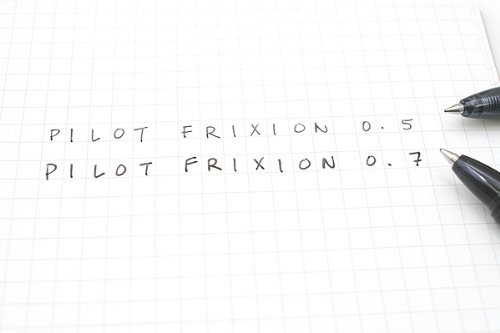 PILOT FRIXION 0.5
PILOT FRIXION 0.7